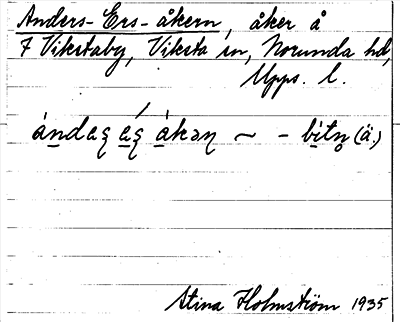 Anders-Ers-åkern, åker å
7 Vikstaby, Viksta sn, Norunda hd,
Upps. l.
ándaʂ áʂ àkəɳ ~ - bìtn̥ (ä.)
Stina Holmström 1935